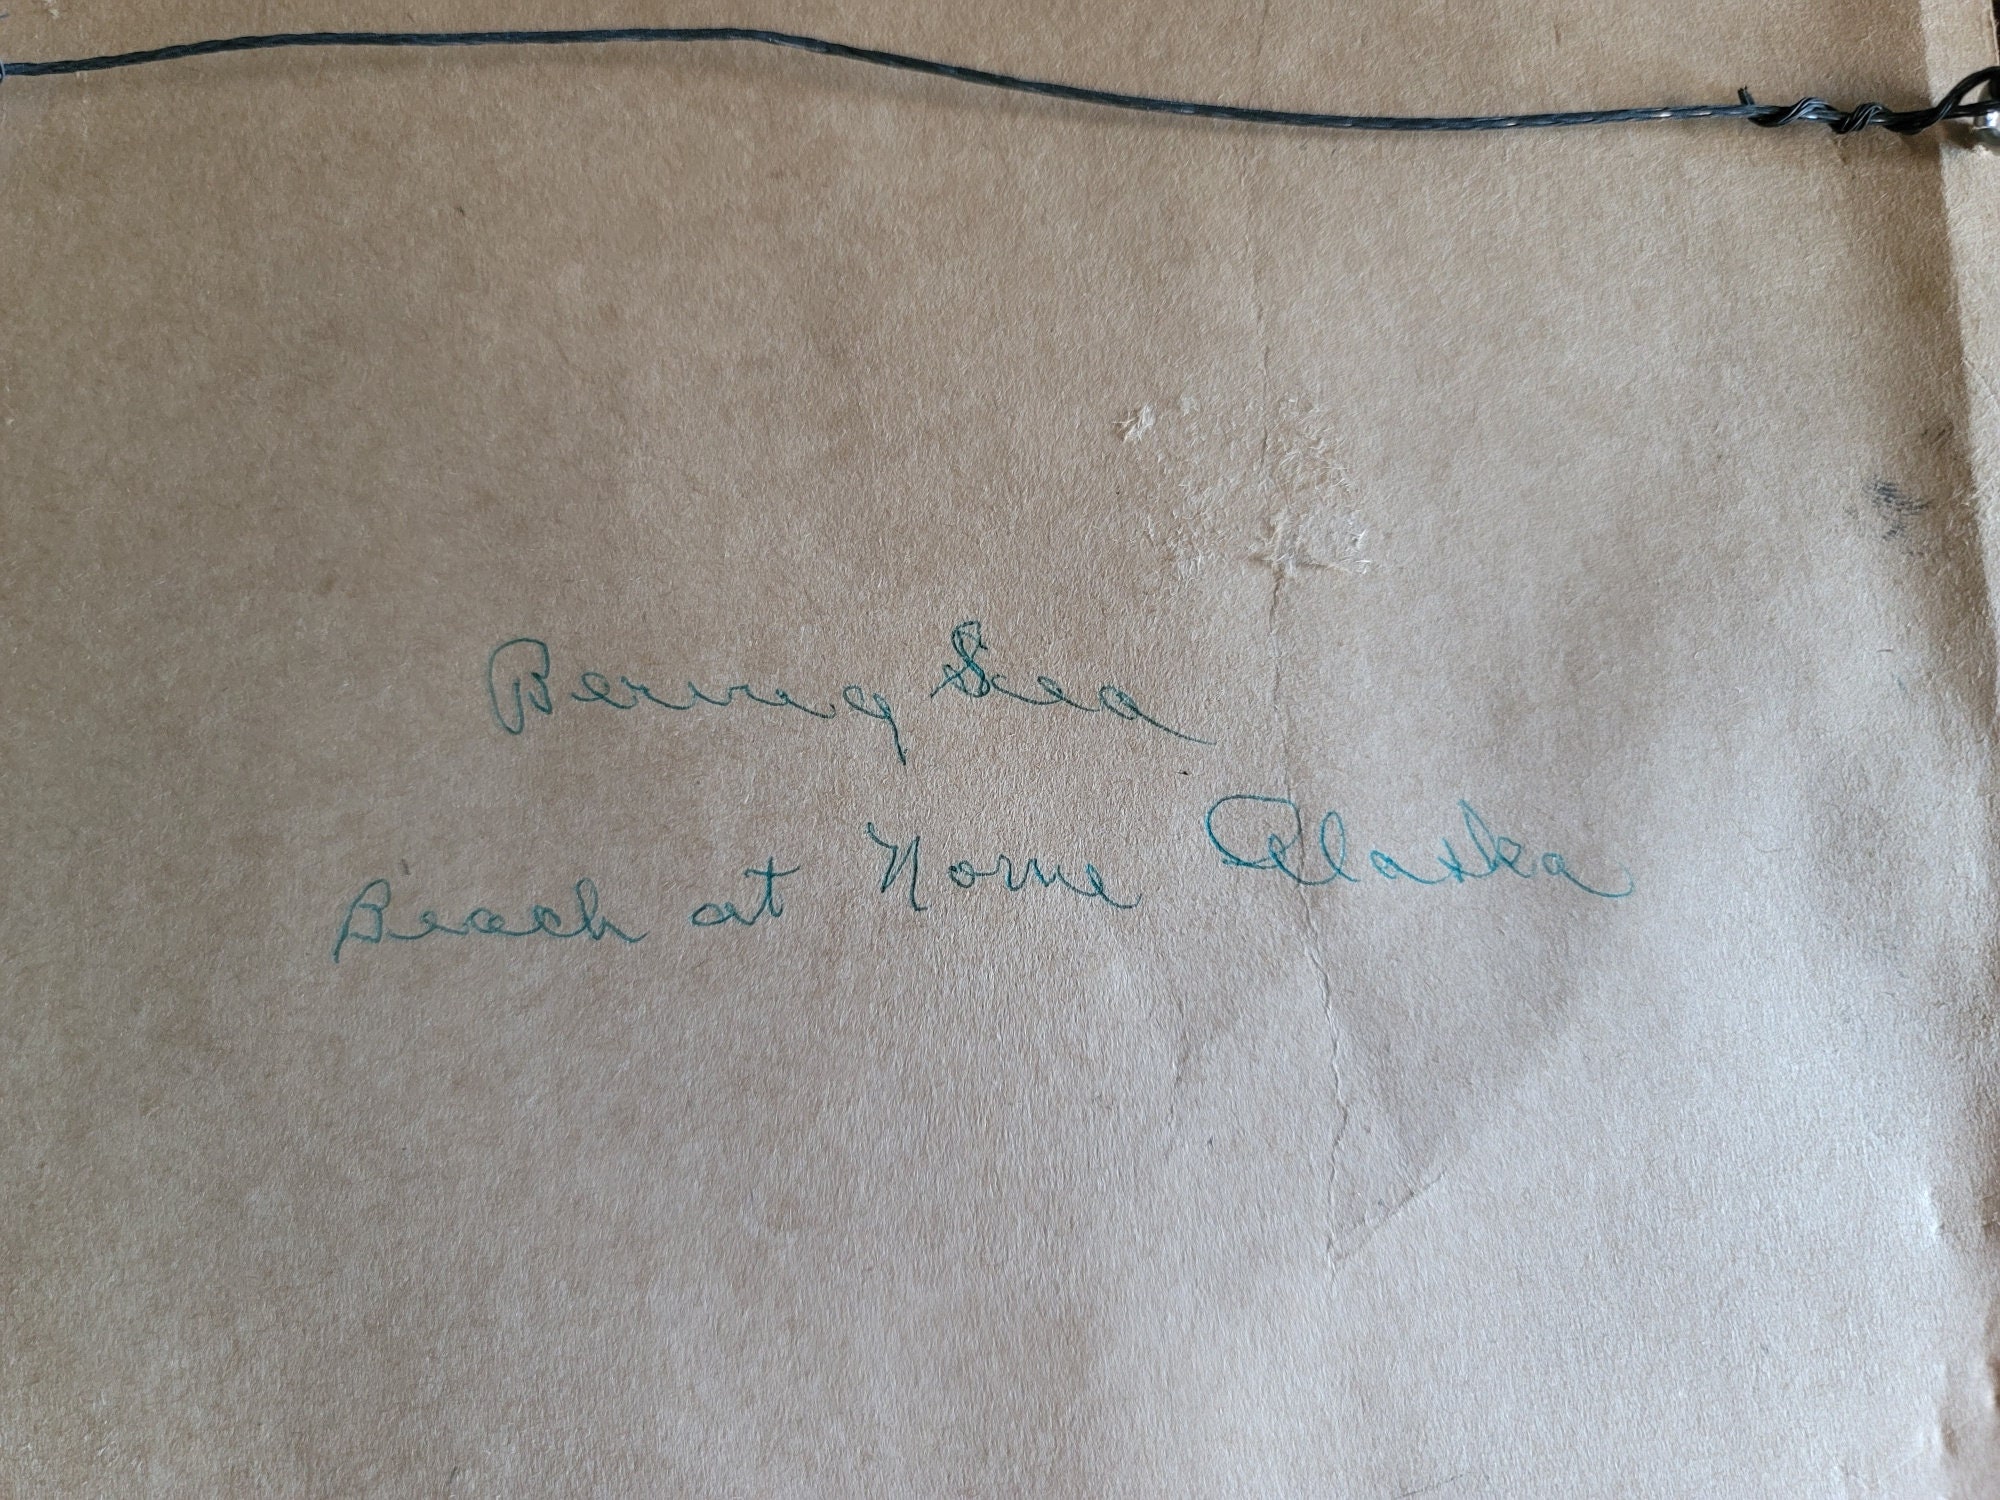 Bering Sea
Beach at Nome Alaska